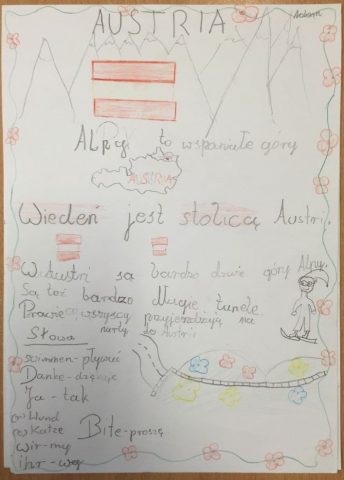 AUSTRIA
Alpy to wspaniałe góry
AUSTRIA
Wiedeń jest stolicą Austri.
W Austri są bardzo duże góry Alpy.
Są też bardzo długie tunele.
Prawie wszyscy przyjeżdżają na
narty do Austri
Słowa
swimmen-pływać
Danke-dziękuje
Ja-tak
Hund
Katze
Bite-proszę
wir-my
ihr-wy